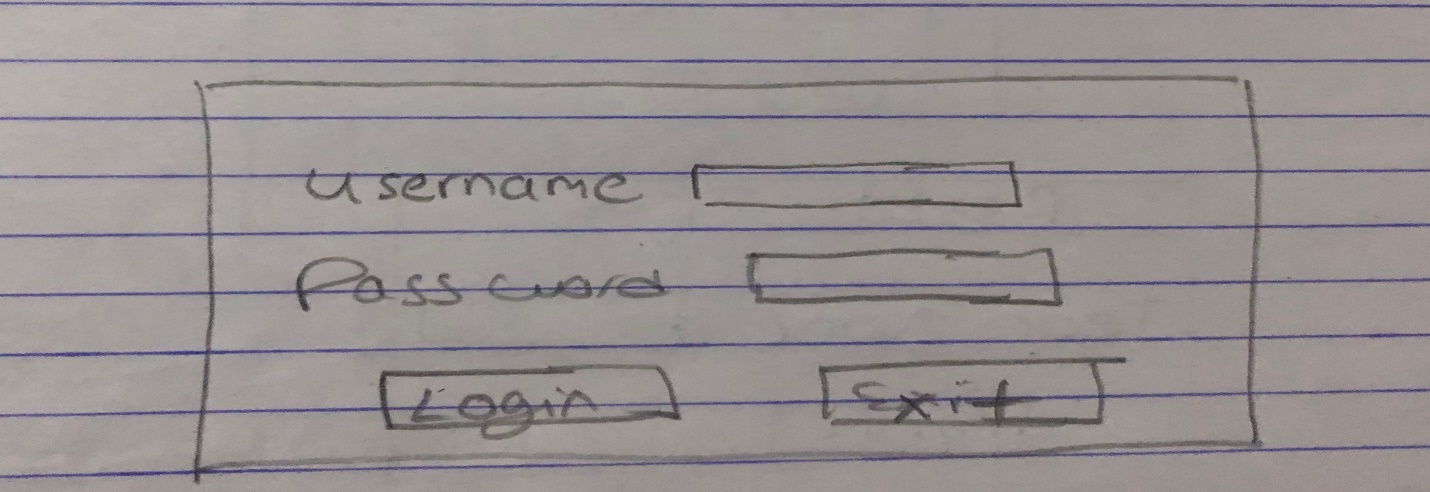 username
Password
Login Exit